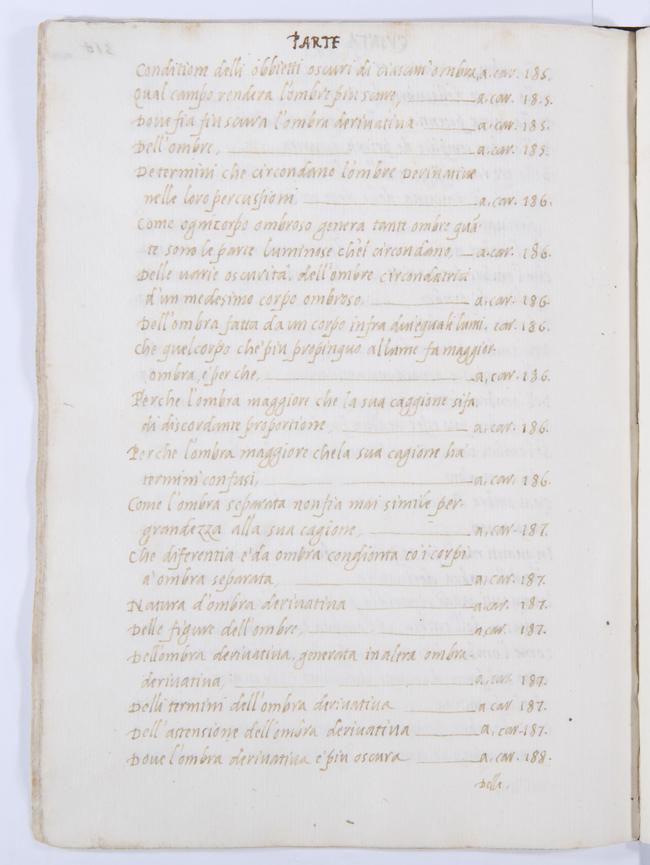 PARTE
Conditioni delli obbietti oscuri di ciascun' ombra, a. car. 185.
Qual campo rendera l'ombre piu scure, a. car. 185.
Doue fia piu scura l'ombra deriuatiua a. car. 185.
Dell'ombre, a. car. 185.
De termini che circondano l'ombre Deriuatiue
nelle loro percussioni a. car. 186.
Come ogni corpo ombroso genera tante ombre quã
te sono le parte luminose ch'el circondano, a. car. 186.
Delle uarie oscurità dell'ombre circondatrici
d'un medesimo corpo ombroso a. car. 186.
Dell'ombra fatta da un corpo infra due equali lumi. car. 186.
Che quel corpo ch'è piu propinquo al lume fa maggior
ombra, e perche, a. car. 186.
Perche l'ombra maggiore che la sua caggione si fa
di discordante proportione a. car. 186.
Perche l'ombra maggiore che la sua cagione ha
termini confusi, a. car. 186.
Come l'ombra separata non fia mai simile per
grandezza alla sua cagione, a. car. 187.
Che diferentia è da ombra congionta co i corpi
a' ombra separata, a. car. 187.
Natura d'ombra deriuatiua a. car. 187.
Delle figure dell'ombre, a. car. 187.
Dell'ombra deriuatiua, generata in altra ombra
deriuatiua, a. car. 187.
Delli termini dell'ombra deriuatiua a car 187.
Dell'astensione dell'ombra deriuatiua a. car. 187.
Doue l'ombra deriuatiua è piu oscura a. car. 188.
Della,